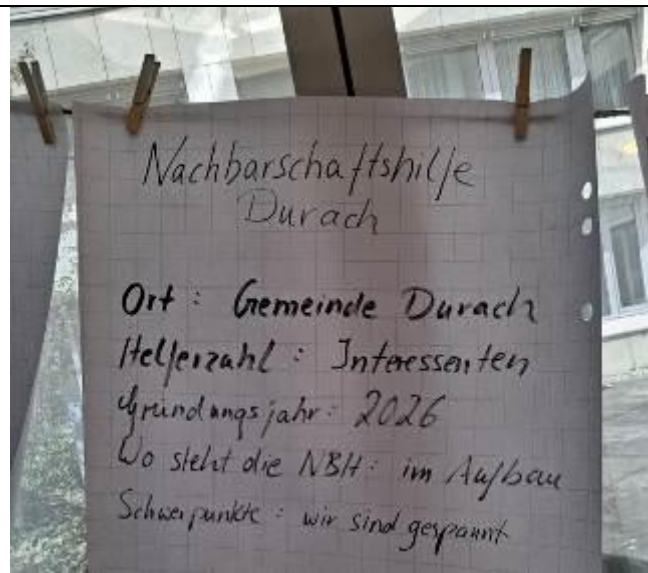 Nachbarschaftshilfe
Durach
Ort : Gemeinde Durach
Helferzahl : Interessenten
Gründungsjahr : 2026
Wo steht die NBH : im Aufbau
Schwerpunkte : wir sind gespannt